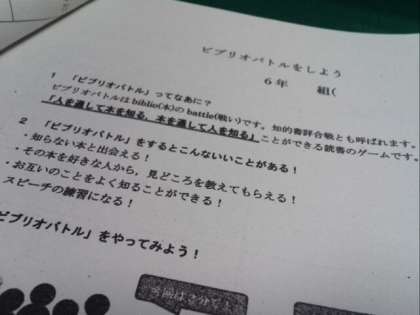 ビブリオバトルをしよう
6年　　組(
1　「ビブリオバトル」ってなあに？
ビブリオバトルはbiblio(本)のbattle(戦い)です。知的書評合戦とも呼ばれます。
「人を通して本を知る、本を通して人を知る」ことができる読書のゲームです。
2　「ビブリオバトル」をするとこんないいことがある！
・知らない本と出会える！
・その本を好きな人から，見どころを教えてもらえる！
・お互いのことをよく知ることができる！
スピーチの練習になる！
ビブリオバトル」をやってみよう！